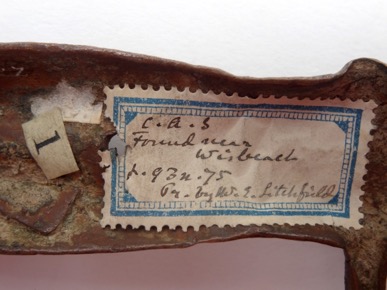 C.A.S
Found near
Wisbeach
93n.75
by W. E. Litchfield
1